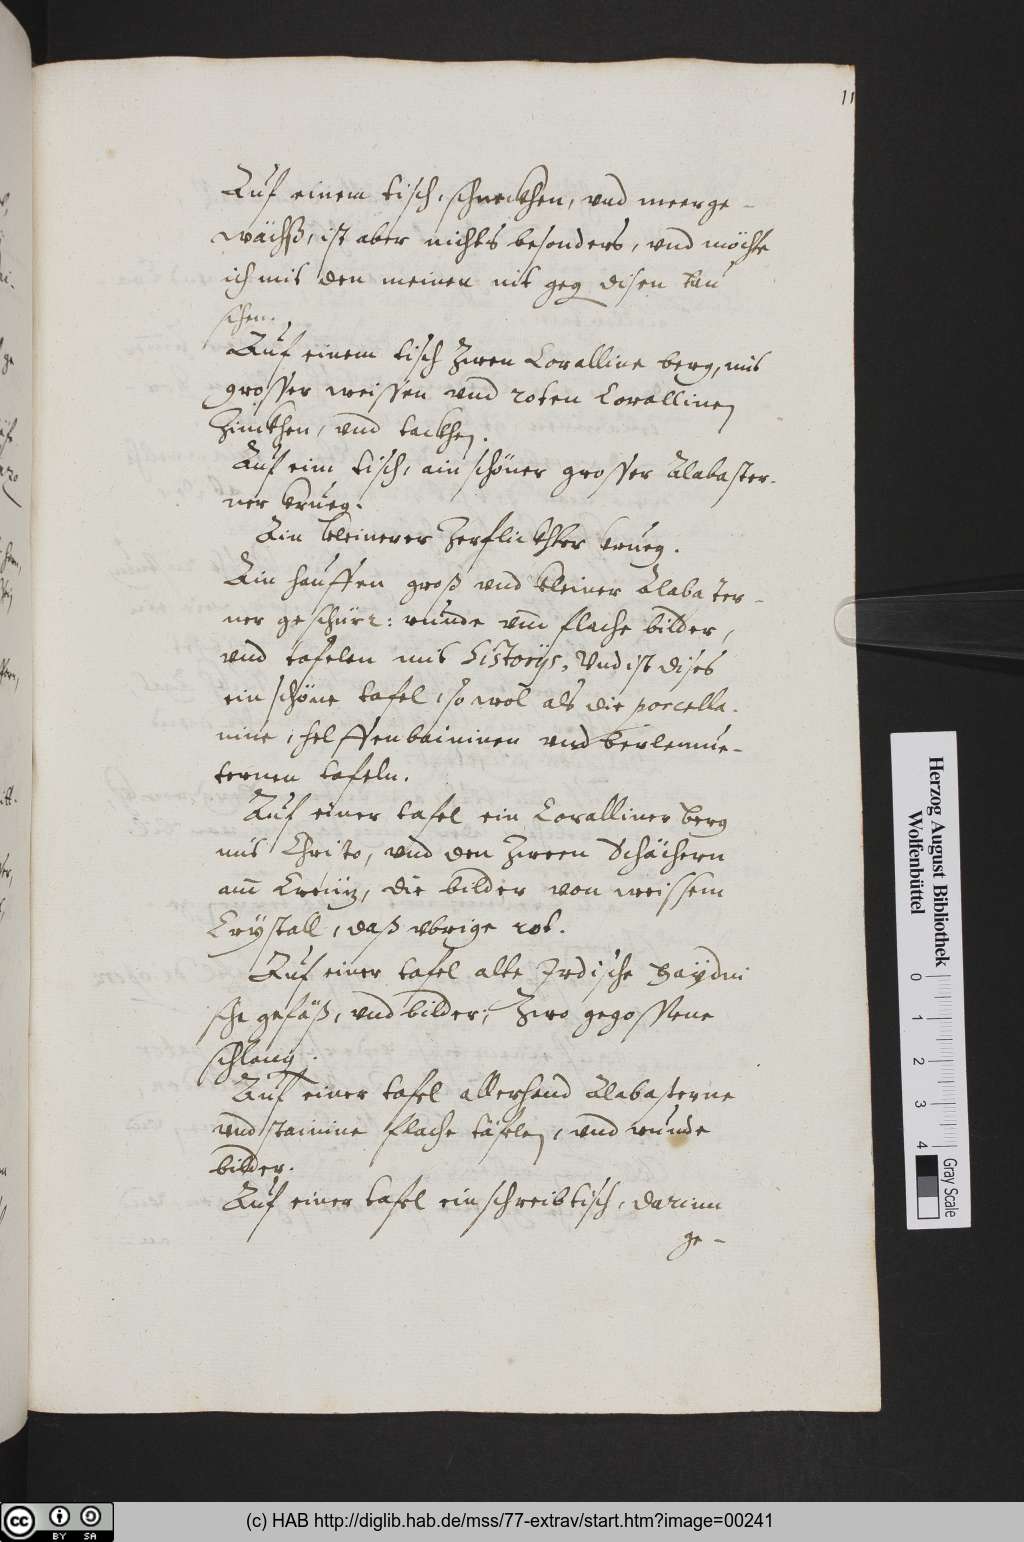 11
Auf einem tisch, schneckhen, vnd meerge-
wächß, ist aber nichts besonders, vnd möchte
ich mit den meinen nit geg disen tau
schen.
Auf einem tisch Zween Coralline berg, mit
grosser weissen vnd roten Corallinen
Zinckhen, vnd tackhen.
Auf eim tisch, ain schöner grosser Alabaster-
ner krueg.
Ain kleinerer Zerflickhter krueg.
Ain hauffen groß vnd kleiner Alabaster-
ner geschürr: runde vnd flache bilder,
vnd tafelen mit Historijs, Vnd ist dises
ein schöne tafel, so wol als die porcella-
nine, helffenbaininen vnd berlemue-
ternen tafeln.
Auf einer tafel ein Coralliner berg
mit Christo, vnd den Zween Schächern
am Creütz, die bilder von weissem
Crystall, daß vbrige rot.
Auf einer tafel alte Irdische Haydni
sche gefäß, vnd bilder, Zwo gegossene
schlang.
Auf einer tafel allerhand Alabasterne
vnd stainine flache täfelen, vnd runde
bilder.
Auf einer tafel ein schreibtisch, darinn
ge-
Herzog August Bibliothek
Wolfenbüttel
0 1 2 3 4
Gray Scale
cc BY SA
(c) HAB http://diglib.hab.de/mss/77-extrav/start.htm?image=00241